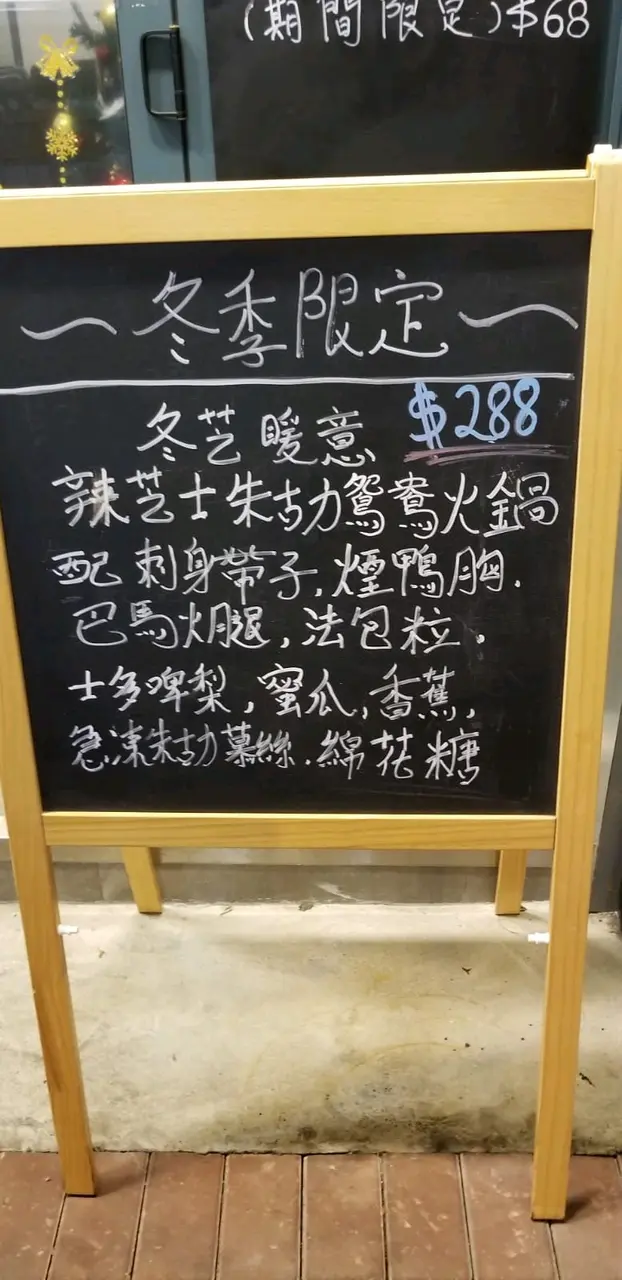 (期間限定)$68
~冬季限定~
冬芝暖意 $288
辣芝士朱古力鴛鴦火鍋
配刺身帶子,煙鴨胸,
巴馬火腿,法包粒,
士多啤梨,蜜瓜,香蕉,
急凍朱古力慕絲,綿花糖